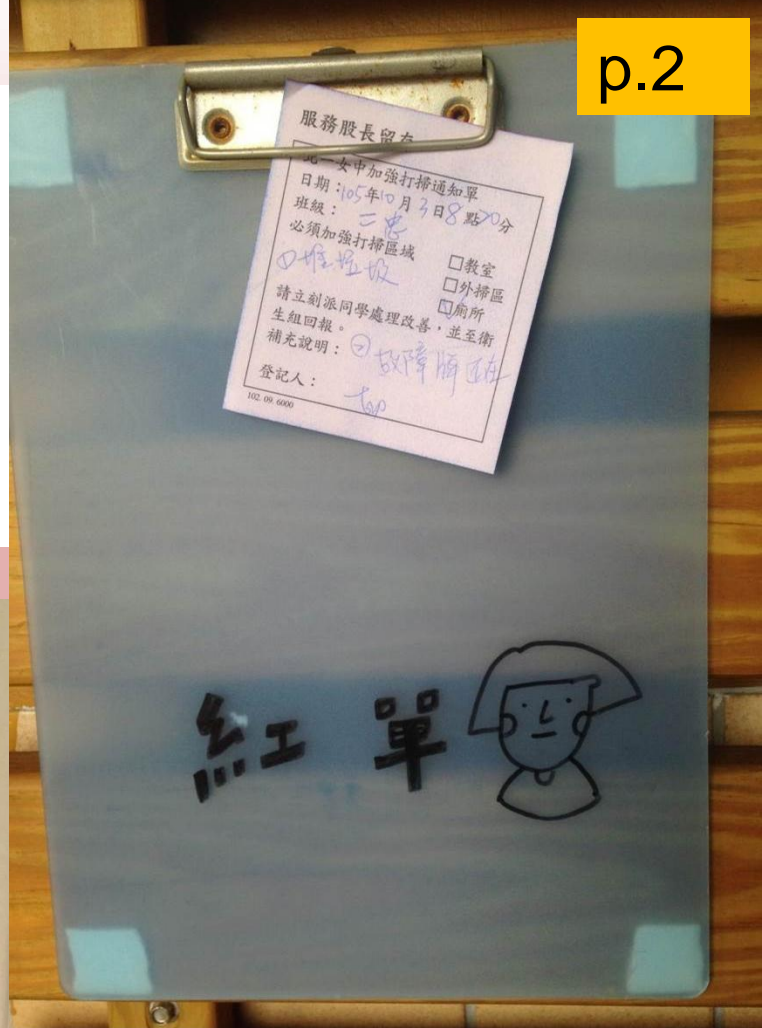 p.2
服務股長留存
北一女中加強打掃通知單
日期：105年10月3日8點20分
班級：二忠
必須加強打掃區域 □教室
①堆垃圾 □外掃區
□廁所
請立刻派同學處理改善，並至衛
生組回報。
補充說明：② 故障牌
登記人：
102.09.6000
紅單